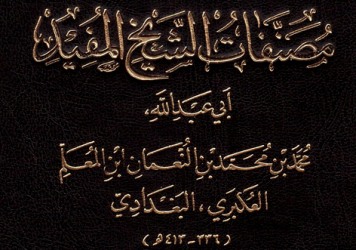 مُصَنَّفَاتُ الشَّيْخِ الْمُفِيْدِ
أَبِي عَبْدِ اللهِ،
مُحَمَّدِ بْنِ مُحَمَّدِ بْنِ النُّعْمَانِ ابْنِ الْمُعَلِّمِ
العُكْبَرِي، البَغْدَادِي
(٣٣٦-٤١٣هـ)